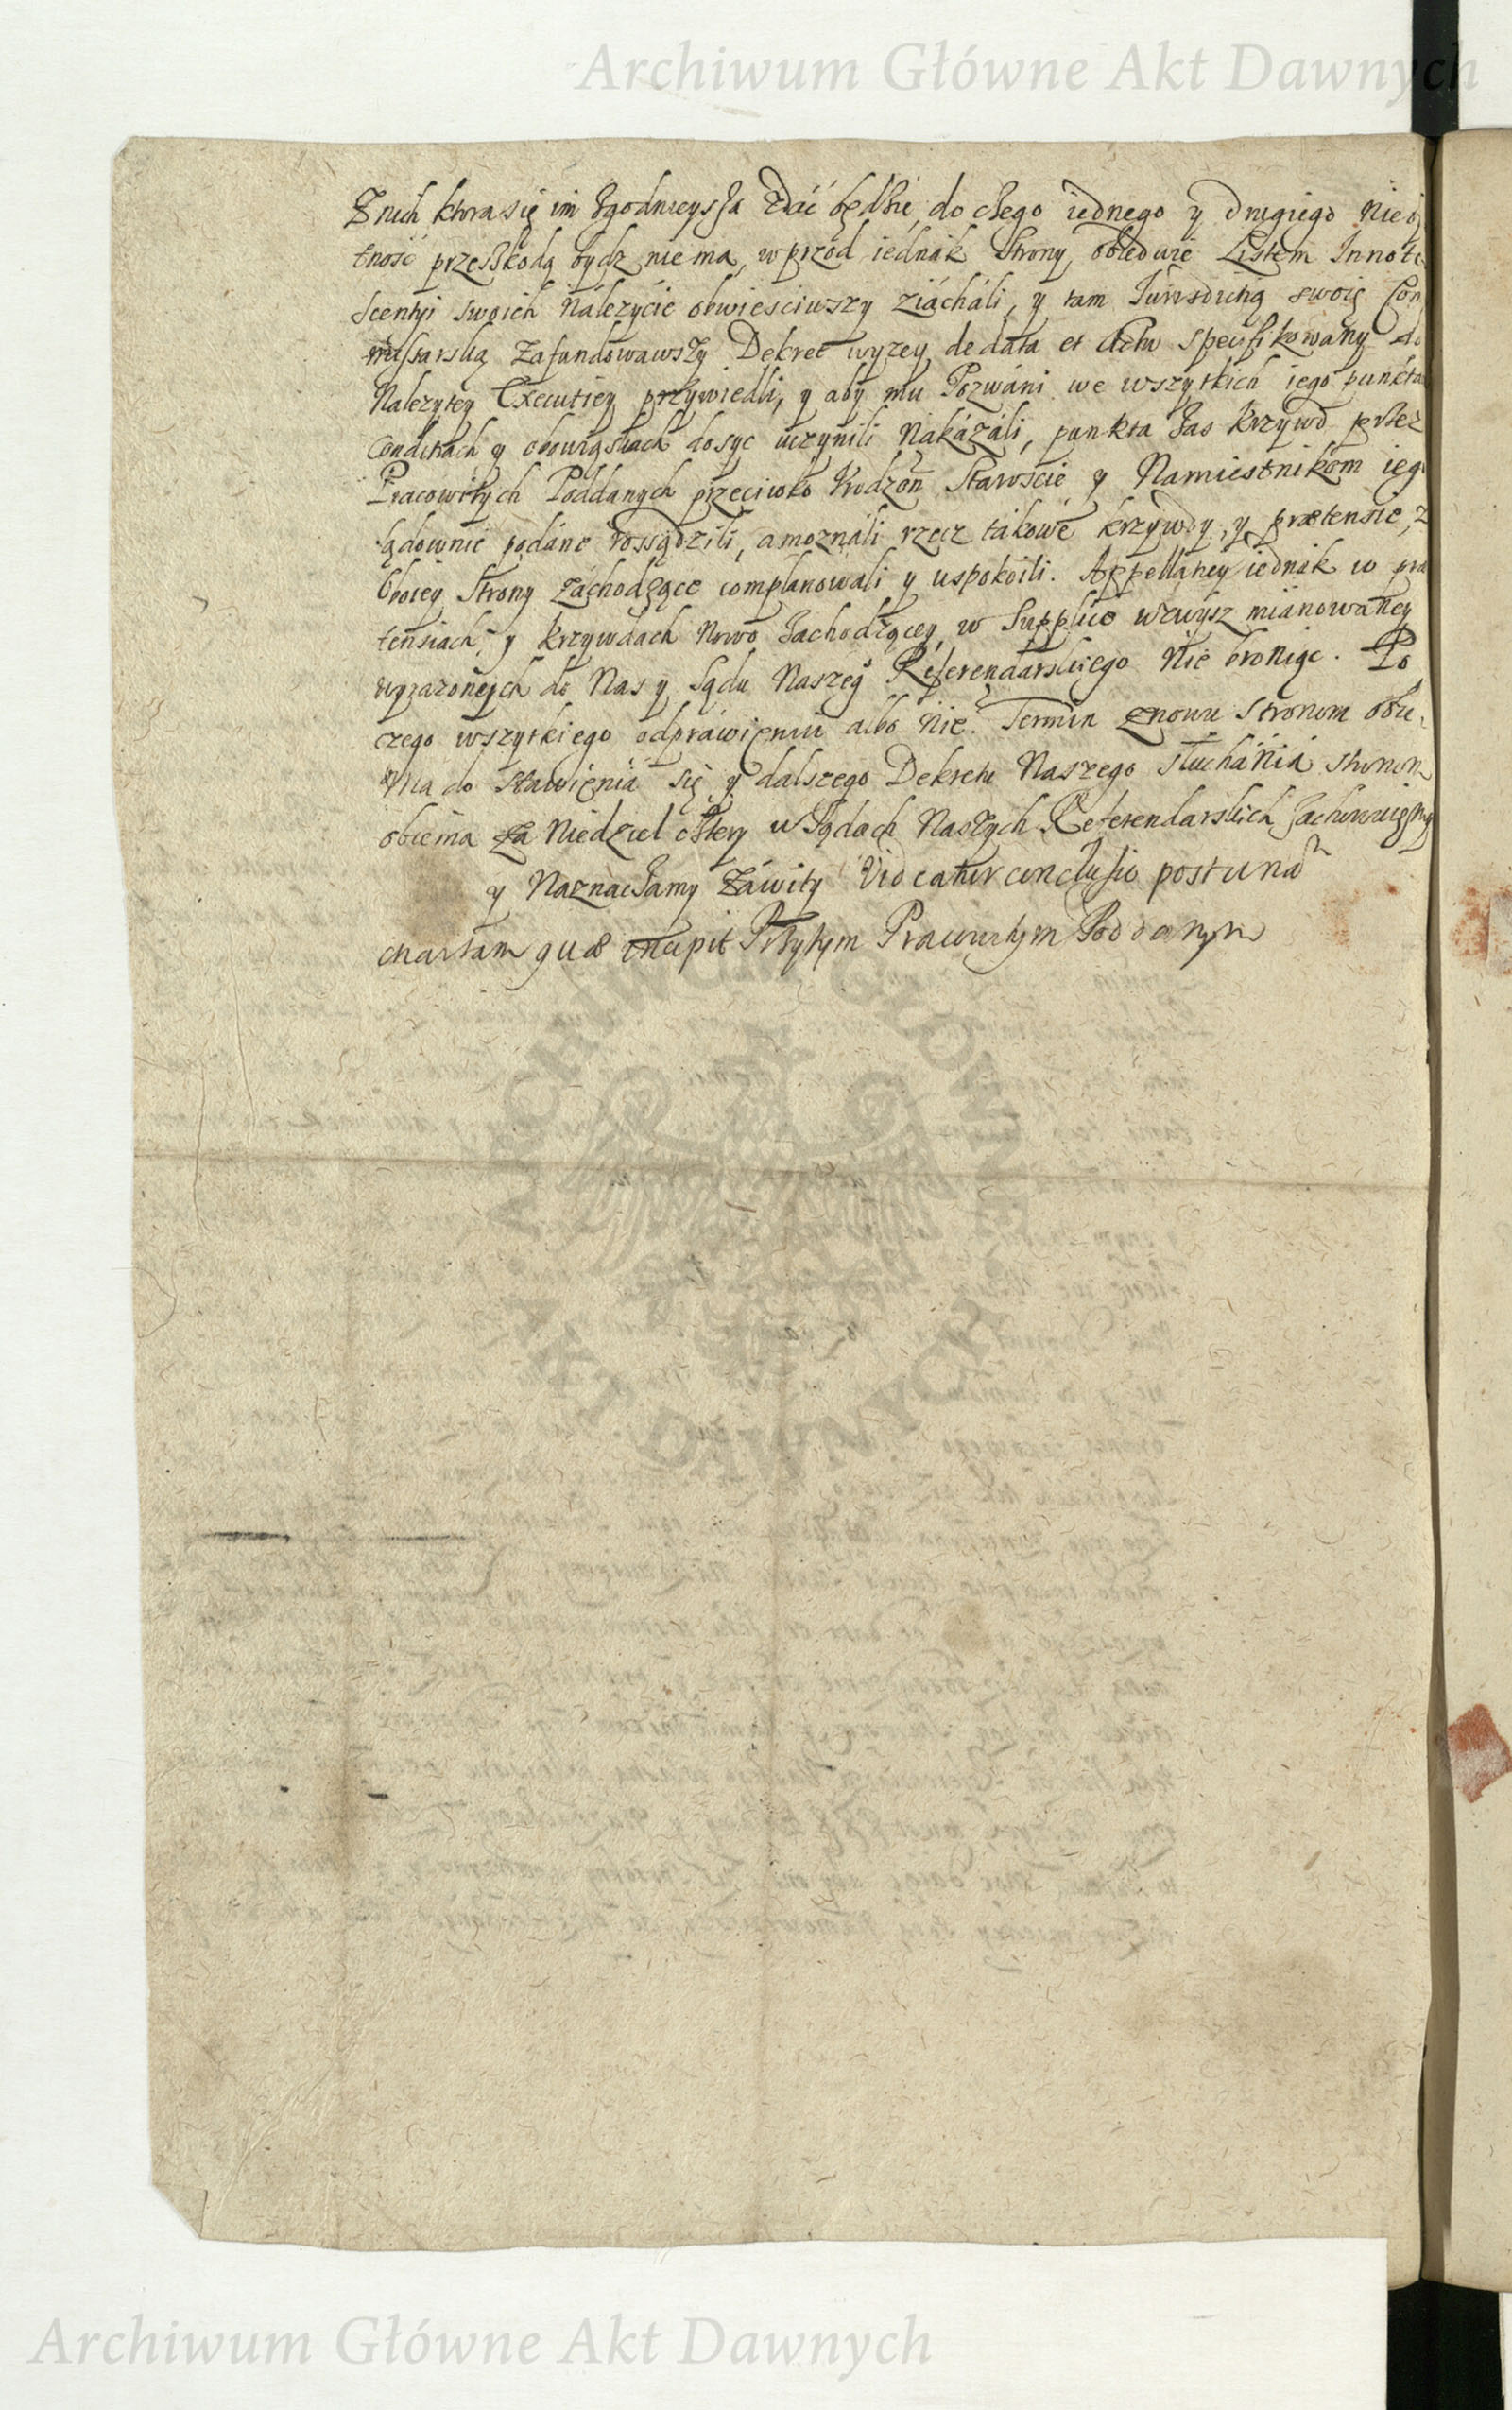 Archiwum Główne Akt Dawnych
Z nich ktora się im zgodnieysza zdać będzie, do czego iednego y drugiego nieby
tność przeszkodą bydz nie ma, wprzod iednák Strony obiedwie Listem Innote
scentyi swoich náleżycie obwiesciwszy ziácháli, y tam Jurisdictią swoię Com
missarską zafundowawszy Dekret wyzey de data et Actu specifikowany do
Nalezytey Executiey przywiedli, y aby mu Pozwáni we wszytkich iego punctach
Conditiach y obowiąskach dosyc uczynili Nakázáli, punkta zas krzywd przez
Pracowitych Poddanych przeciwko Urodzon Staroście y Namiestnikom iego
sądownie podáne rossądzili, a moznali rzecz tákowe krzywdy, y prætensie, z
oboiey Strony záchodzące complanowali y uspokoili. Appellátiey iednák w præ
tensiach, y krzywdach nowo zachodzącey, w Supplice wzwysz miánowáney
wyrazonych do Nas y Sądu Naszeg Referendarskiego nie broniąc. Po
czego wszytkiego odpráwieniu albo nie. Termin znowu stronom obie
ma do stawienia się y dalszego Dekretu Naszego słuchánia stronom
obiema za Niedziel cztery w Sądach Naszych Referendarskich zachowuiemy
y Naznaczamy záwity Videatur conclusio post una
chartam quæ incipit Przytym Pracowitym Poddanym
ARCHIWUM GŁÓWNE
AKT DAWNYCH
Archiwum Główne Akt Dawnych